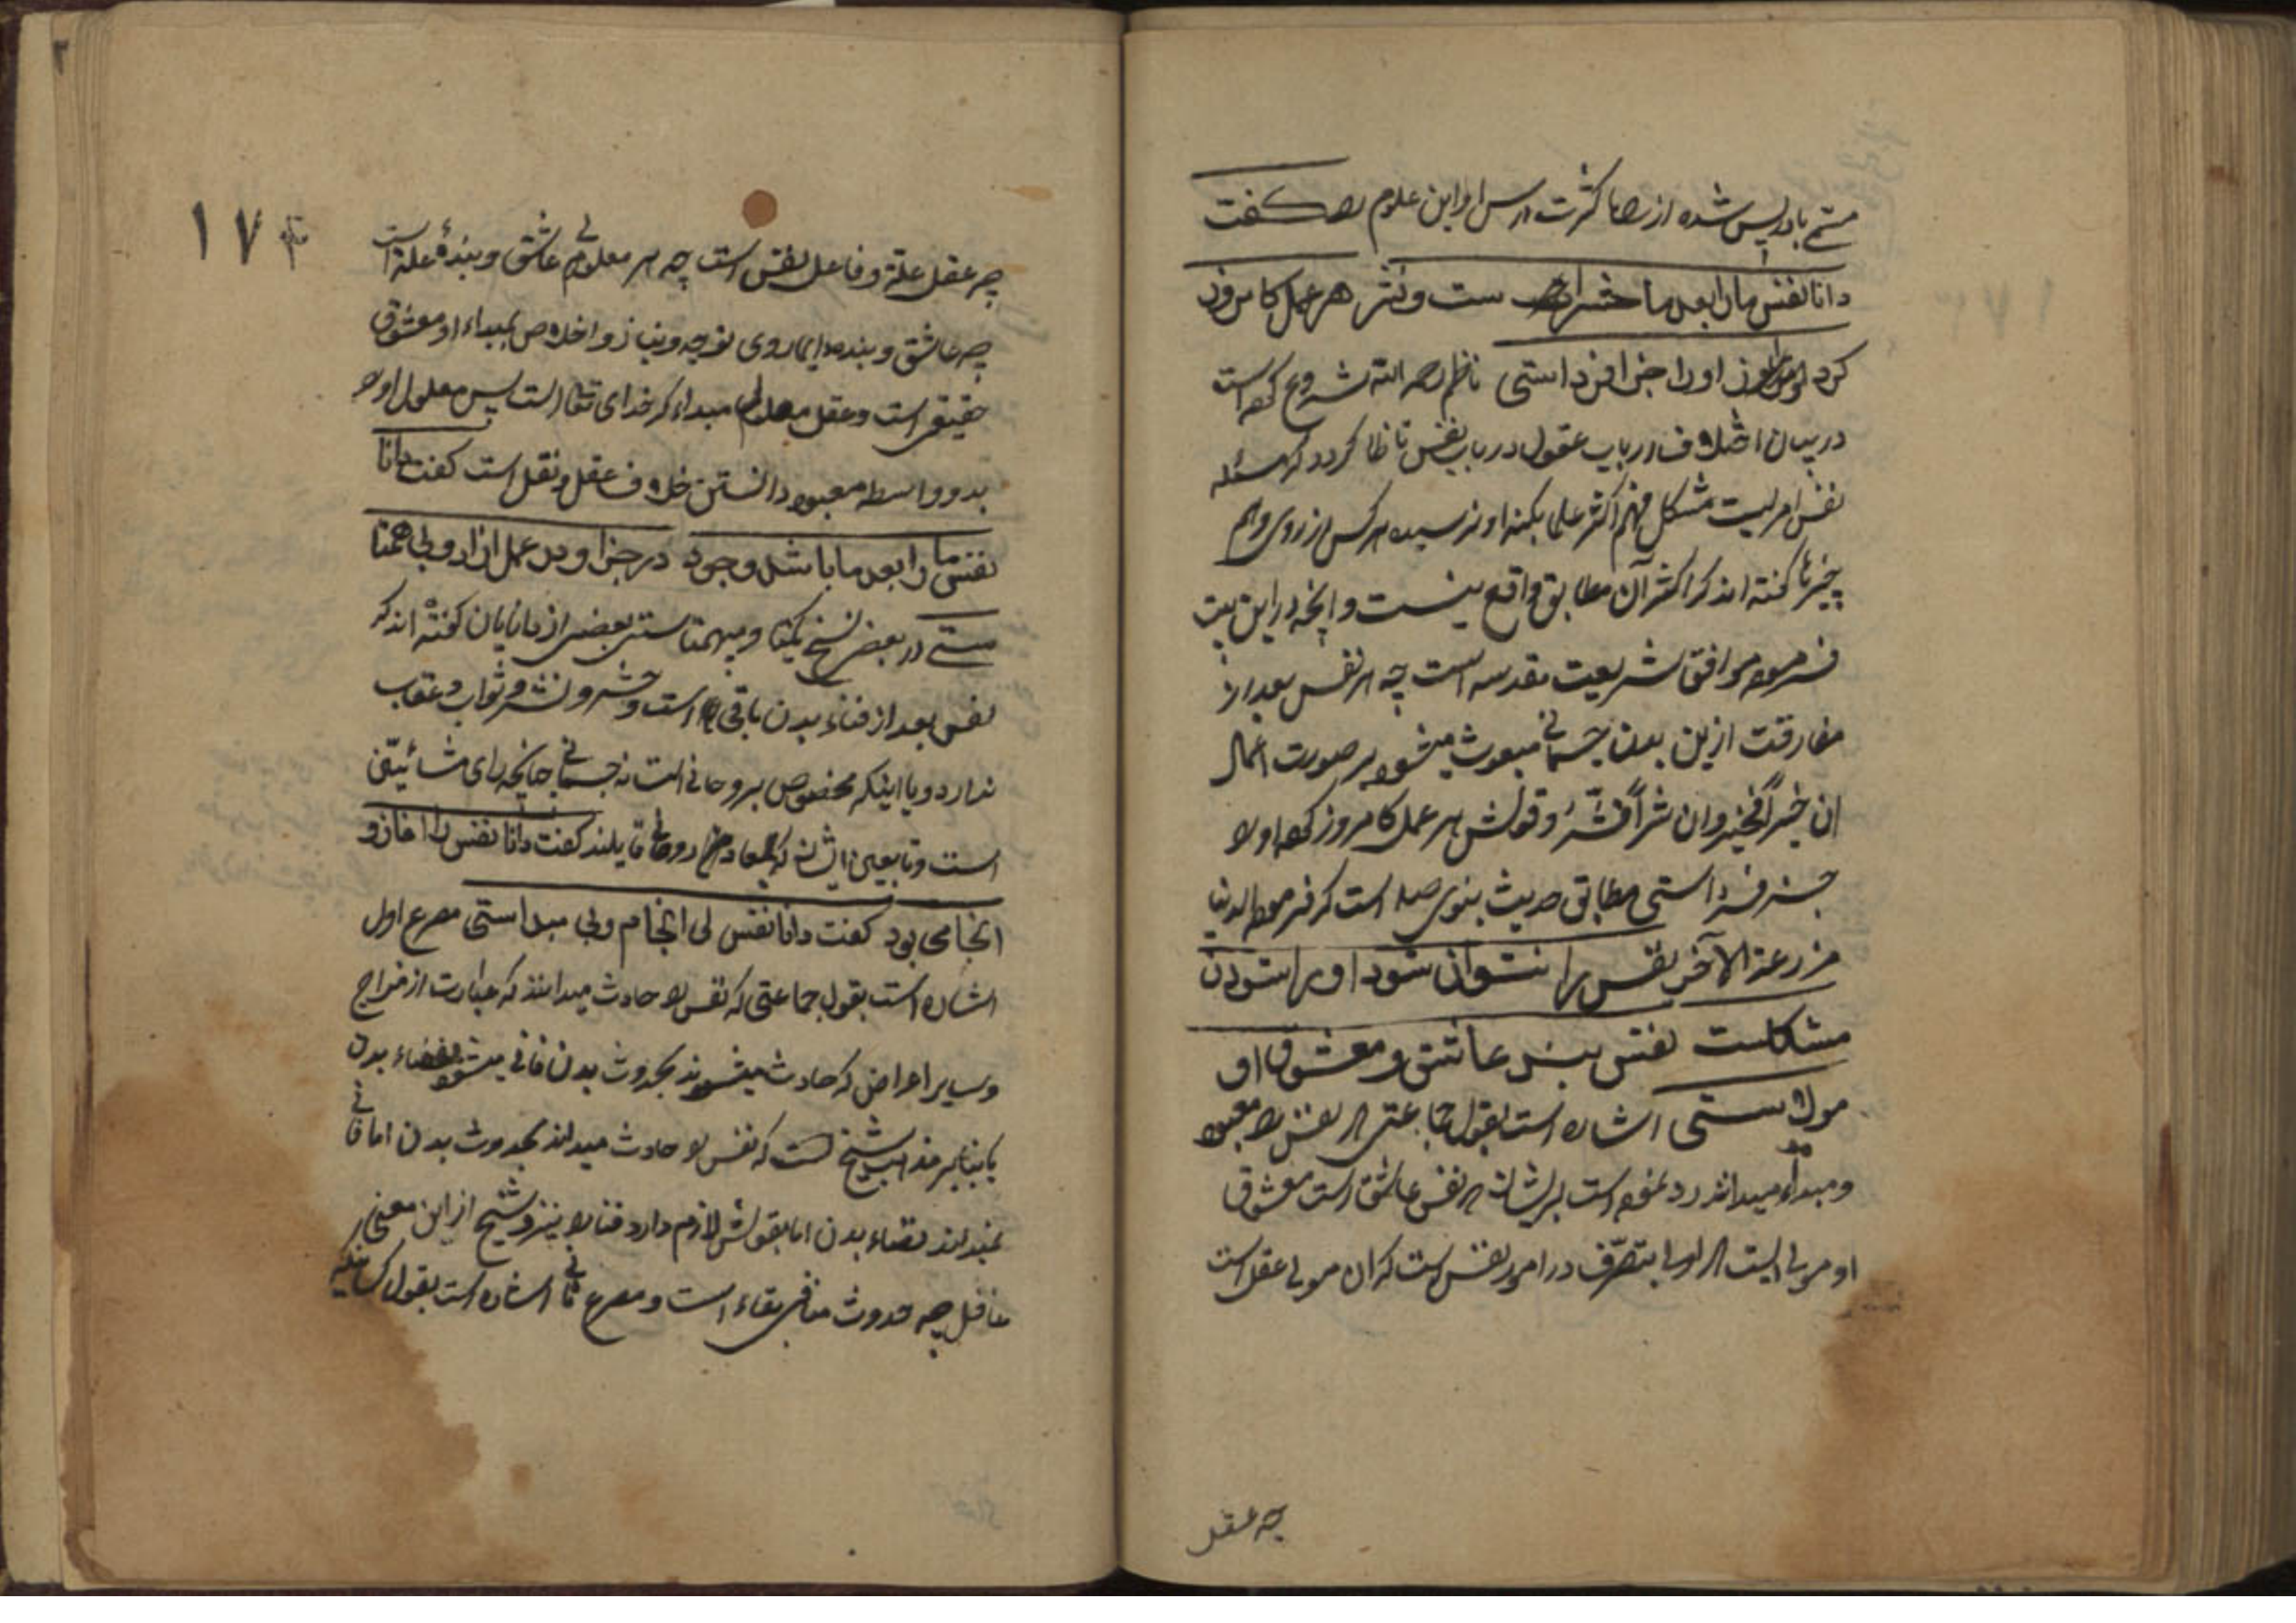 مسمّی بادریس شده از کثرت درس او این علوم را گفت
دانا نفس ما را بعد ما حشر است و نشر هر عمل کامروز
کرد او را جزا فرداستی ناظم رحمه الله شروع کرده است
در بیان اختلاف ارباب عقول در باب نفس تا ظاهر گردد که مسئله
نفس امریست مشکل فهم اکثر علما بکنه او نرسیده هر کس از روی وهم
چیزها گفته اند که اکثر آن مطابق واقع نیست و آنچه در این بیت
فرموده موافق شریعت مقدسه است چه هر نفس بعد از
مفارقت ازین بدن جسمانی مبعوث میشود بر صورت اعمال
ان خیراً فخیر و ان شراً فشرّ و قولش هر عمل کامروز کرد او را
جزا فرداستی مطابق حدیث نبوی صلعم است که فرموده الدنیا
مزرعة الآخرة نفس را نتوان ستود او را ستودن
مشکلست نفس بنده عاشق و معشوق او
مولاستی اشاره است بقول جماعتی که نفس را معبود
و مبداء میدانند رد نموده است بر ایشان که نفس عاشق است معشوق
او مولی است که اولی بتصرّف در امور نفس است که آن مولی عقل است
چه عقل
١٧٤
چه عقل علة و فاعل نفس است چه هر معلولی عاشق و بندهٔ علة است
چه عاشق و بنده را دایما روی توجه و نیاز و اخلاص بمبداء او معشوق
حقیقی است و عقل معلول مبداء که خدای تعالی است پس معلول او را
بدو واسطه معبود دانستن خلاف عقل و نقل است گفت دانا
نفس ما را بعد ما باشد وجود در جزا و در عمل آزاد و بی همتا
ستی در بعض نسخ یکتا و بیهمتاستی بعضی از دانایان گفته اند که
نفس بعد از فناء بدن باقی است و حشر و نشر و ثواب و عقاب
ندارد و یا اینکه مخصوص بروحانی است نه جسمانی چنانچه رای مشائیّین
است و تابعین ایشان که بمعاد روحانی قایلند گفت دانا نفس را آغاز و
انجامی بود گفت دانا نفس بی انجام و بی مبداستی مصرع اول
اشاره است بقول جماعتی که نفس را حادث میدانند که عبارت از مزاج
و سایر اعراض که حادث میشوند بحدوث بدن فانی میشود بفناء بدن
یا بنابر مذهب شیخ است که نفس را حادث میداند بحدوث بدن اما فانی
نمیداند بفناء بدن اما بقولش لازم دارد فنا را نیز و شیخ از این معنی
غافل چه حدوث منافی بقاء است و مصرع ثانی اشاره است بقول کسانیکه